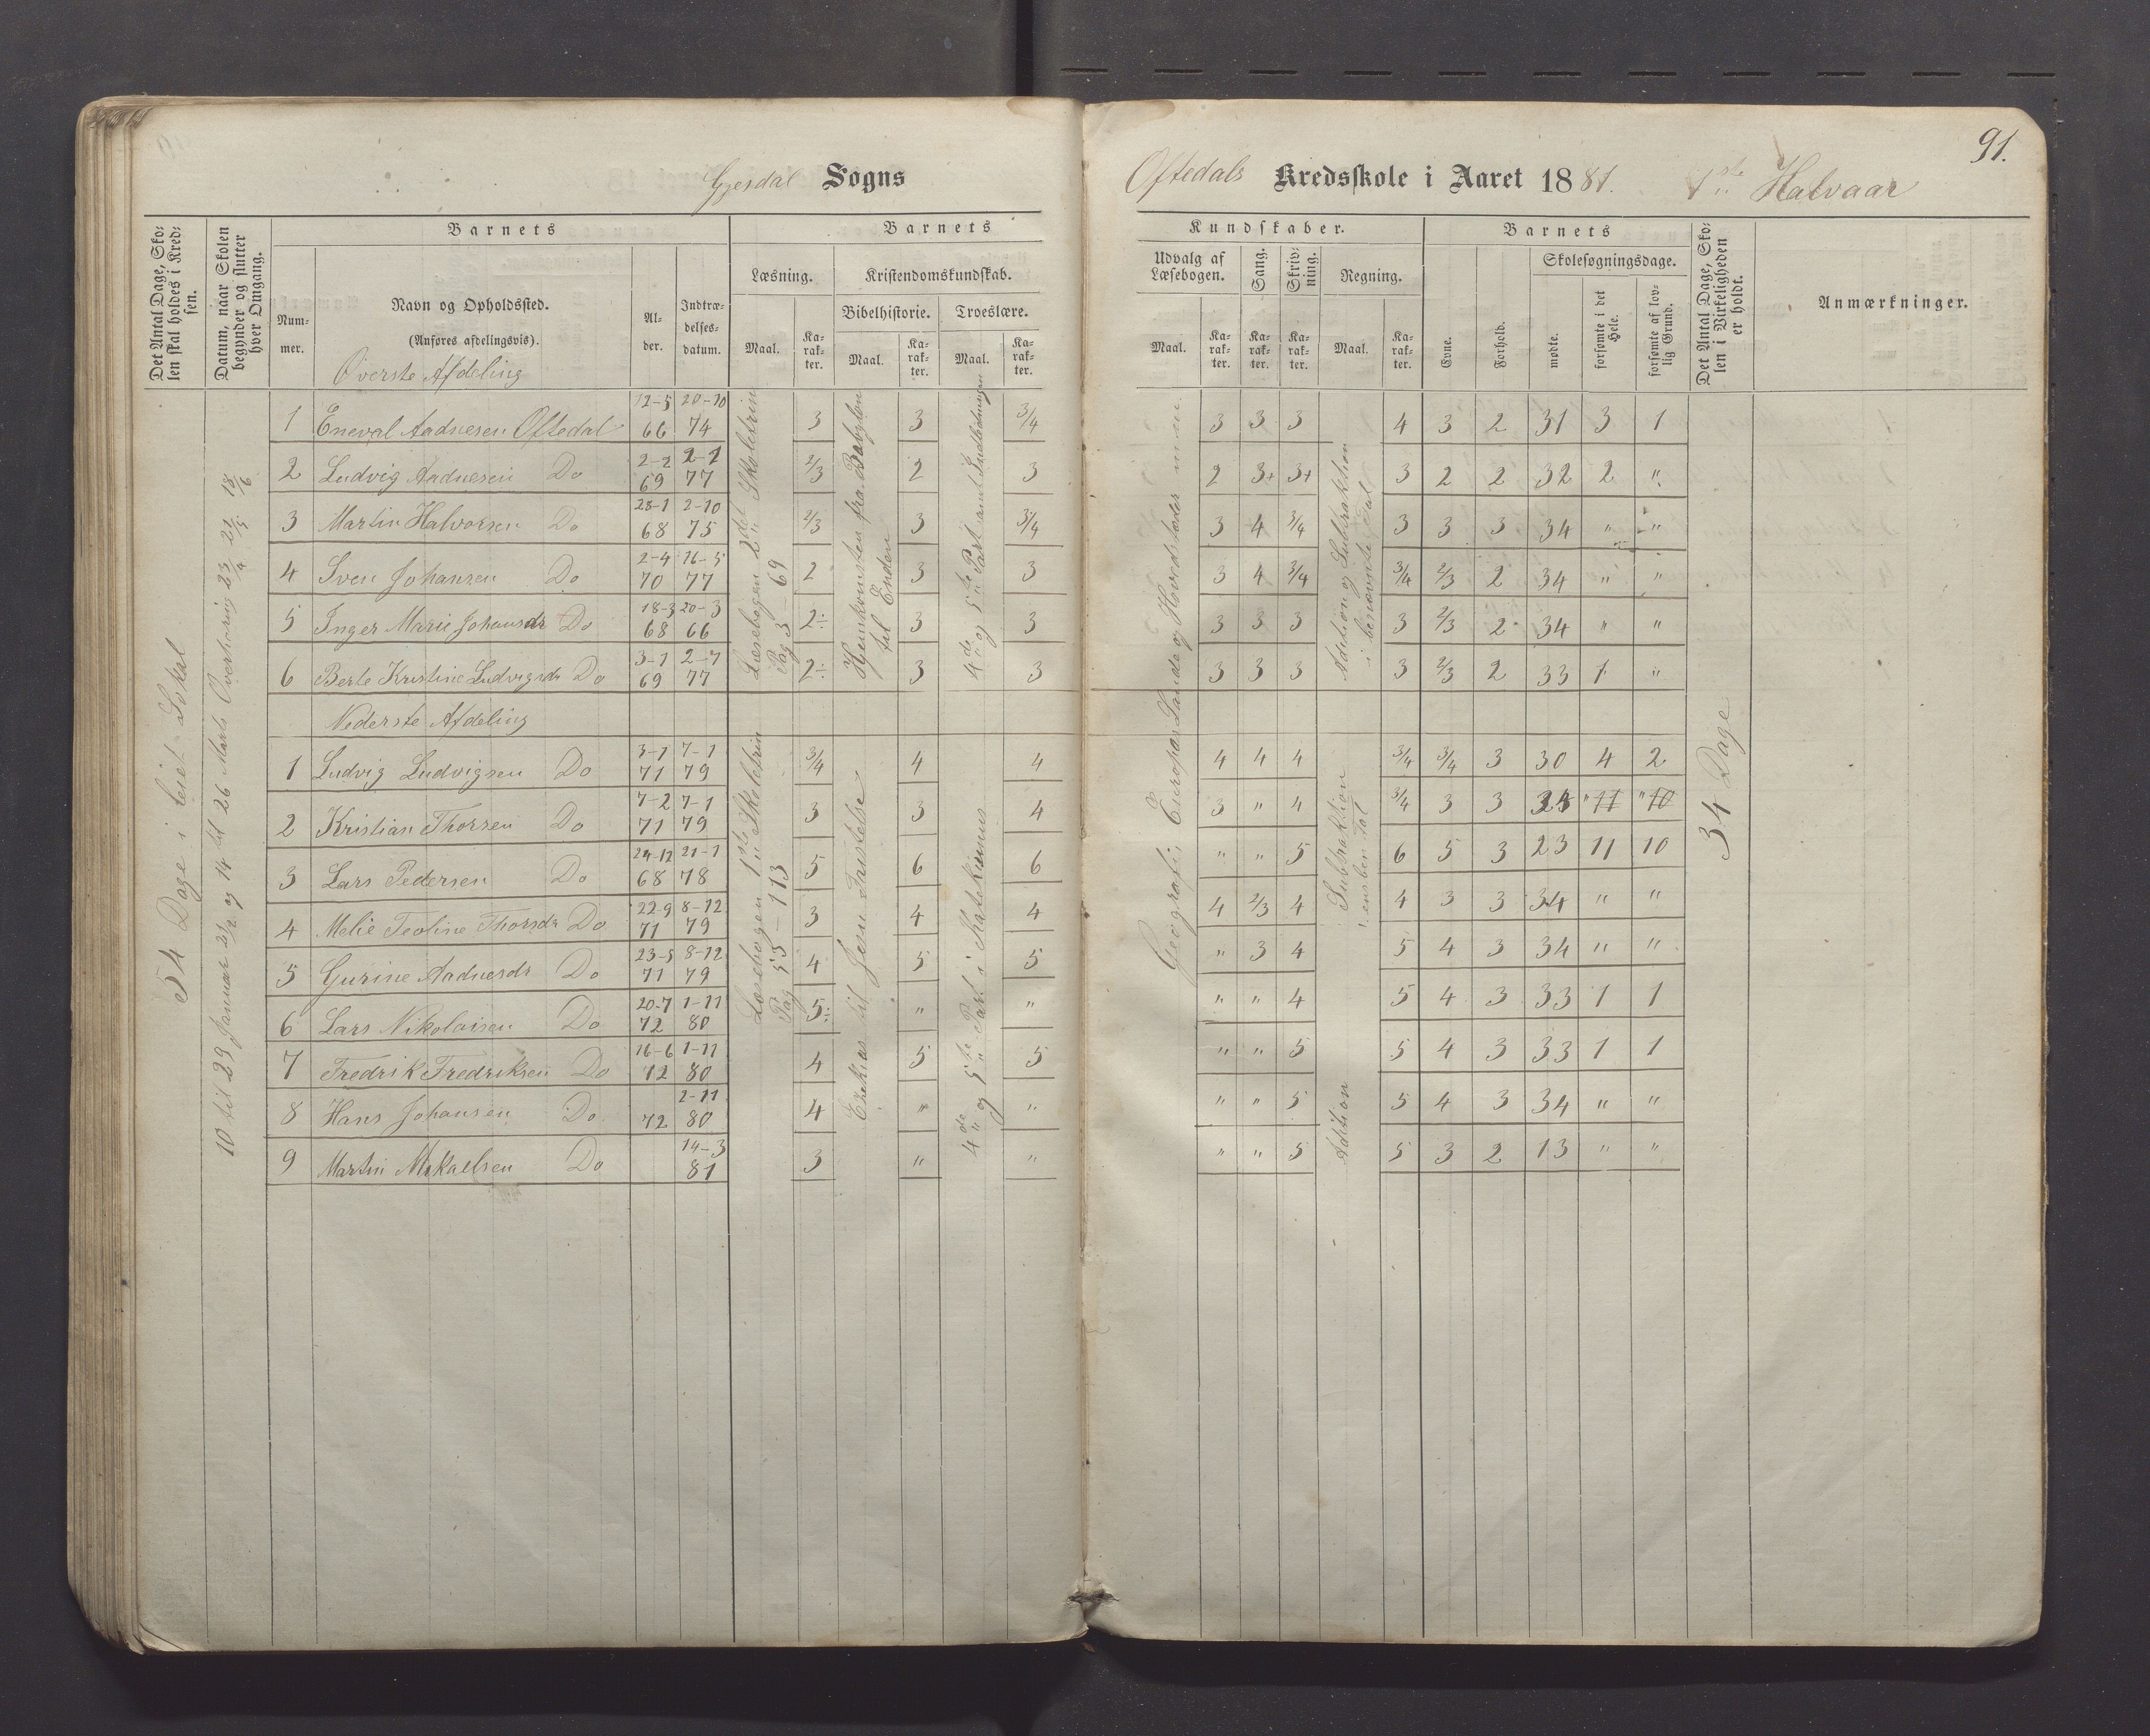 91.
Gjesdal Sogns
Oftedals Kredsskole i Aaret 1881. 1ste Halvaar
Det Antal Dage, Skolen skal holdes i Kredsen.
Datum, naar Skolen begynder og slutter hver Omgang.
Barnets
Nummer.
Navn og Opholdssted.
(Anføres afdelingsvis).
Alder.
Indtrædelsesdatum.
Barnets
Læsning.
Maal.
Karakter.
Kristendomskundskab.
Bibelhistorie.
Maal.
Karakter.
Troeslære.
Maal.
Karakter.
Kundskaber.
Udvalg af Læsebogen.
Maal.
Karakter.
Sang.
Karakter.
Skrivning.
Karakter.
Regning.
Maal.
Karakter.
Barnets
Evne.
Forhold.
Skolesøgningsdage.
mødte.
forsømte i det Hele.
forsømte af lovlig Grund.
Det Antal Dage, Skolen i Virkeligheden er holdt.
Anmærkninger.
54 Dage i leiet Lokal
10 til 29 Januar 21/2 og 14 til 26 Marts Overhøring 23/4 21/5 18/6
Øverste Afdeling
1 Eneval Aadnesen Oftedal 12-5 66 20-10 74 3 3 3/4 3 3 3 4 3 2 31 3 1
2 Ludvig Aadnesen Do 2-2 69 2-1 77 2/3 2 3 2 3+ 3+ 3 2 2 32 2 "
3 Martin Halvorsen Do 28-1 68 2-10 75 2/3 3 3/4 3 4 3/4 3 3 3 34 " "
4 Sven Johansen Do 2-4 70 16-5 77 2 3 3 3 4 3/4 3/4 2/3 2 34 " "
5 Inger Marie Johansdr Do 18-3 68 20-3 66 2÷ 3 3 3 3 3 3 2/3 2 34 " "
6 Berte Kristine Ludvigsdr Do 3-1 69 2-7 77 2÷ 3 3 3 3 3 3 2/3 2 33 1 "
Læsebogen 2det Skoletrin
Pag 3 - 69
Hjemkomsten fra Babylon
til Enden
4de og 5te Part samt Indledningen
Geografi, Europas Lande og Hovedstæder
Adition og Subtraktion
i benævnte Tal
Nederste Afdeling
1 Ludvig Ludvigsen Do 3-1 71 7-1 79 3/4 4 4 4 4 4 3/4 3/4 3 30 4 2
2 Kristian Thorsen Do 7-2 71 7-1 79 3 3 4 3 " 4 3/4 3 3 34 " 11 " 10
3 Lars Pedersen Do 24-12 68 21-1 78 5 6 6 " " 5 6 5 3 23 11 10
4 Melie Teoline Thorsdr Do 22-9 71 8-12 79 3 4 4 4 2/3 4 4 3 3 34 " "
5 Gurine Aadnesdr Do 23-5 71 8-12 79 4 5 5 " 3 4 5 4 3 34 " "
6 Lars Nikolaisen Do 20-7 72 1-11 80 5÷ " " " " 4 5 4 3 33 1 1
7 Fredrik Fredriksen Do 16-6 72 1-11 80 4 5 5 " " 5 5 4 3 33 1 1
8 Hans Johansen Do 72 2-11 80 4 " " " " 5 5 4 3 34 " "
9 Martin Mikaelsen Do 14-3 81 3 " " " " 5 5 3 2 13 " "
Læsebogen 1ste Skoletrin
Pag 55 - 113
Ezekias til Jesu Fristelse
4de og 5te Part i Katekismus
Subtraktion
i ensben Tal
Adition
34 Dage